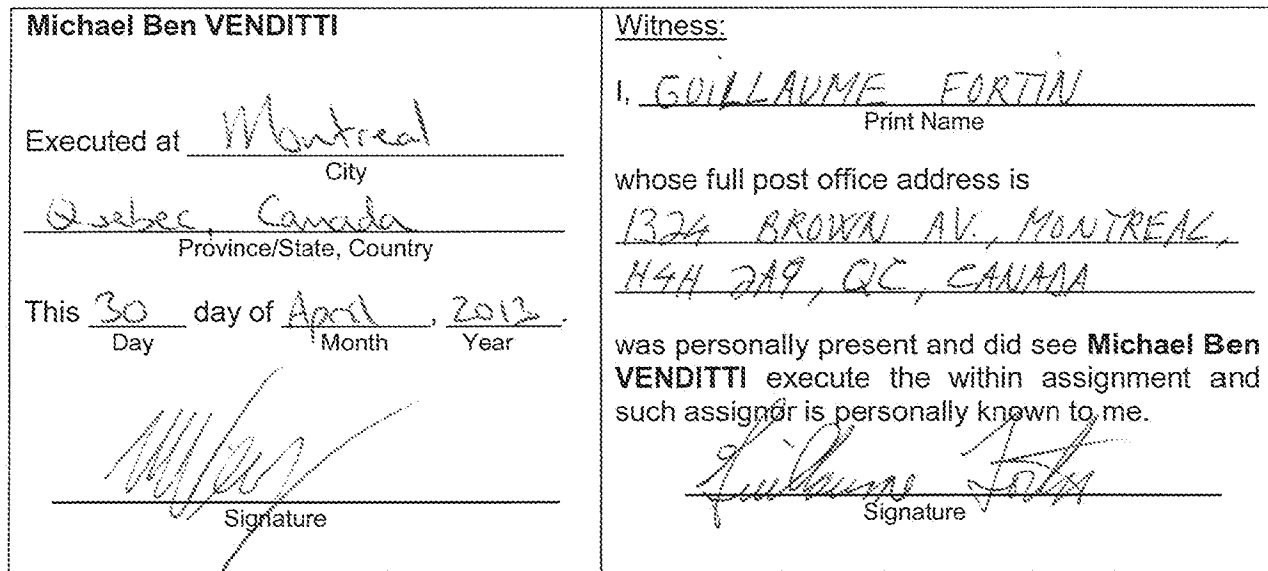 Michael Ben VENDITTI
Executed at Montreal
City
Quebec, Canada
Province/State, Country
This 30 day of April, 2013.
Day Month Year
Signature
Witness:
I, GUILLAUME FORTIN
Print Name
whose full post office address is
1324 BROWN AV., MONTREAL,
H4H 2A9, QC, CANADA
was personally present and did see Michael Ben
VENDITTI execute the within assignment and
such assignor is personally known to me.
Guillaume Fortin
Signature